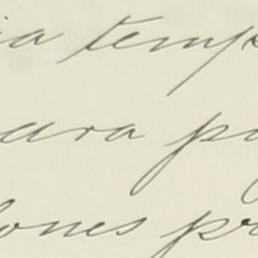 ia temp
ara p
lones pr